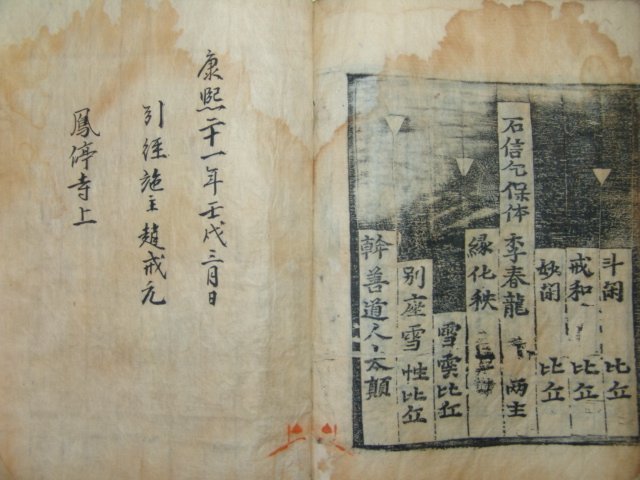 斗閑 比丘
戒和 比丘
妙閑 比丘
石信乞保体 李春龍 両主
縁化秩
雪雲比丘
別座雪性比丘
幹善道人太顛
康熙二十一年壬戌三月日
引経施主趙戒元
鳳停寺上